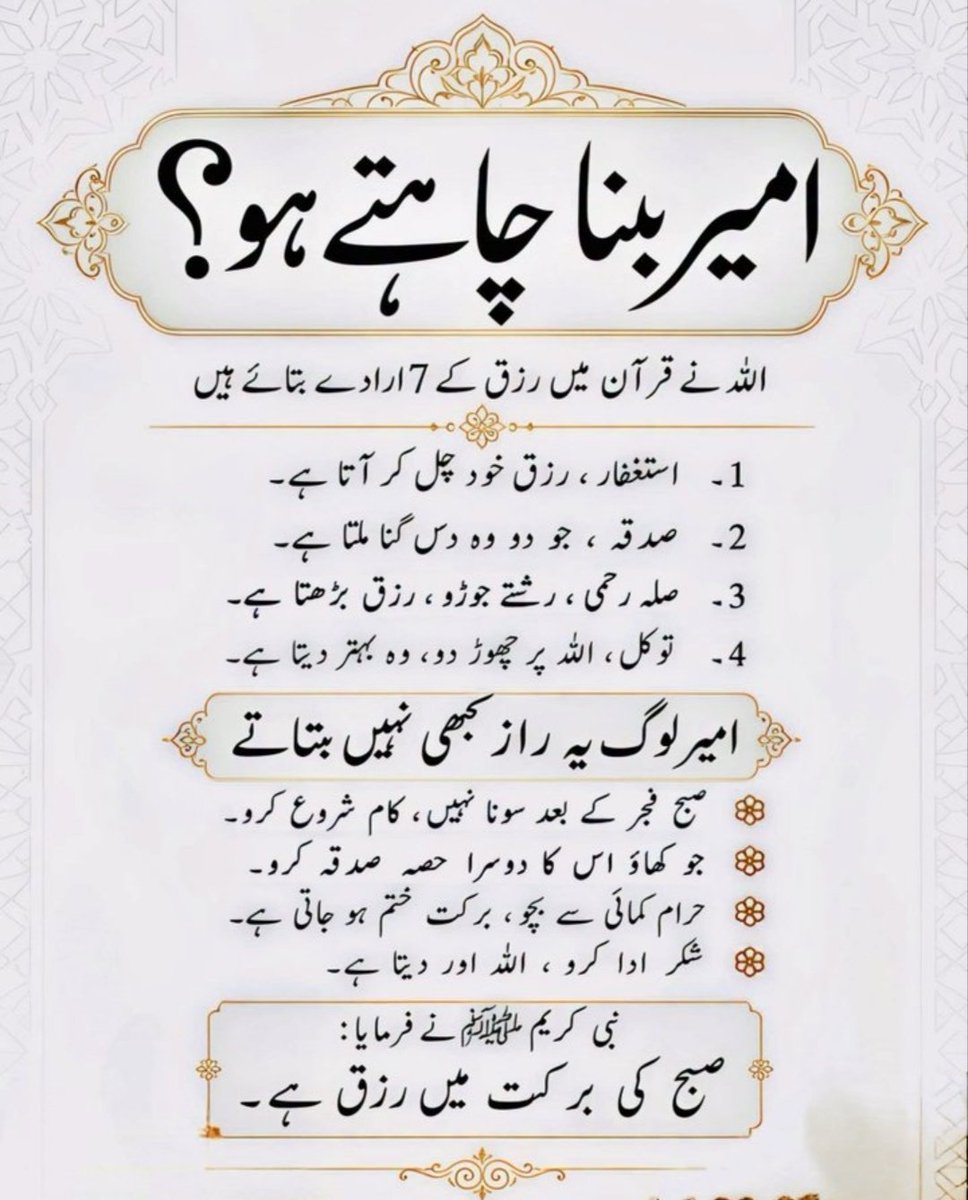 امیر بننا چاہتے ہو؟
اللہ نے قرآن میں رزق کے 7 ارادے بتائے ہیں
1۔ استغفار، رزق خود چل کر آتا ہے۔
2۔ صدقہ، جو دو وہ دس گنا ملتا ہے۔
3۔ صلہ رحمی، رشتے جوڑو، رزق بڑھتا ہے۔
4۔ توکل، اللہ پر چھوڑ دو، وہ بہتر دیتا ہے۔
امیر لوگ یہ راز کبھی نہیں بتاتے
صبح فجر کے بعد سونا نہیں، کام شروع کرو۔
جو کھاؤ اس کا دوسرا حصہ صدقہ کرو۔
حرام کمائی سے بچو، برکت ختم ہو جاتی ہے۔
شکر ادا کرو، اللہ اور دیتا ہے۔
نبی کریم ﷺ نے فرمایا:
صبح کی برکت میں رزق ہے۔